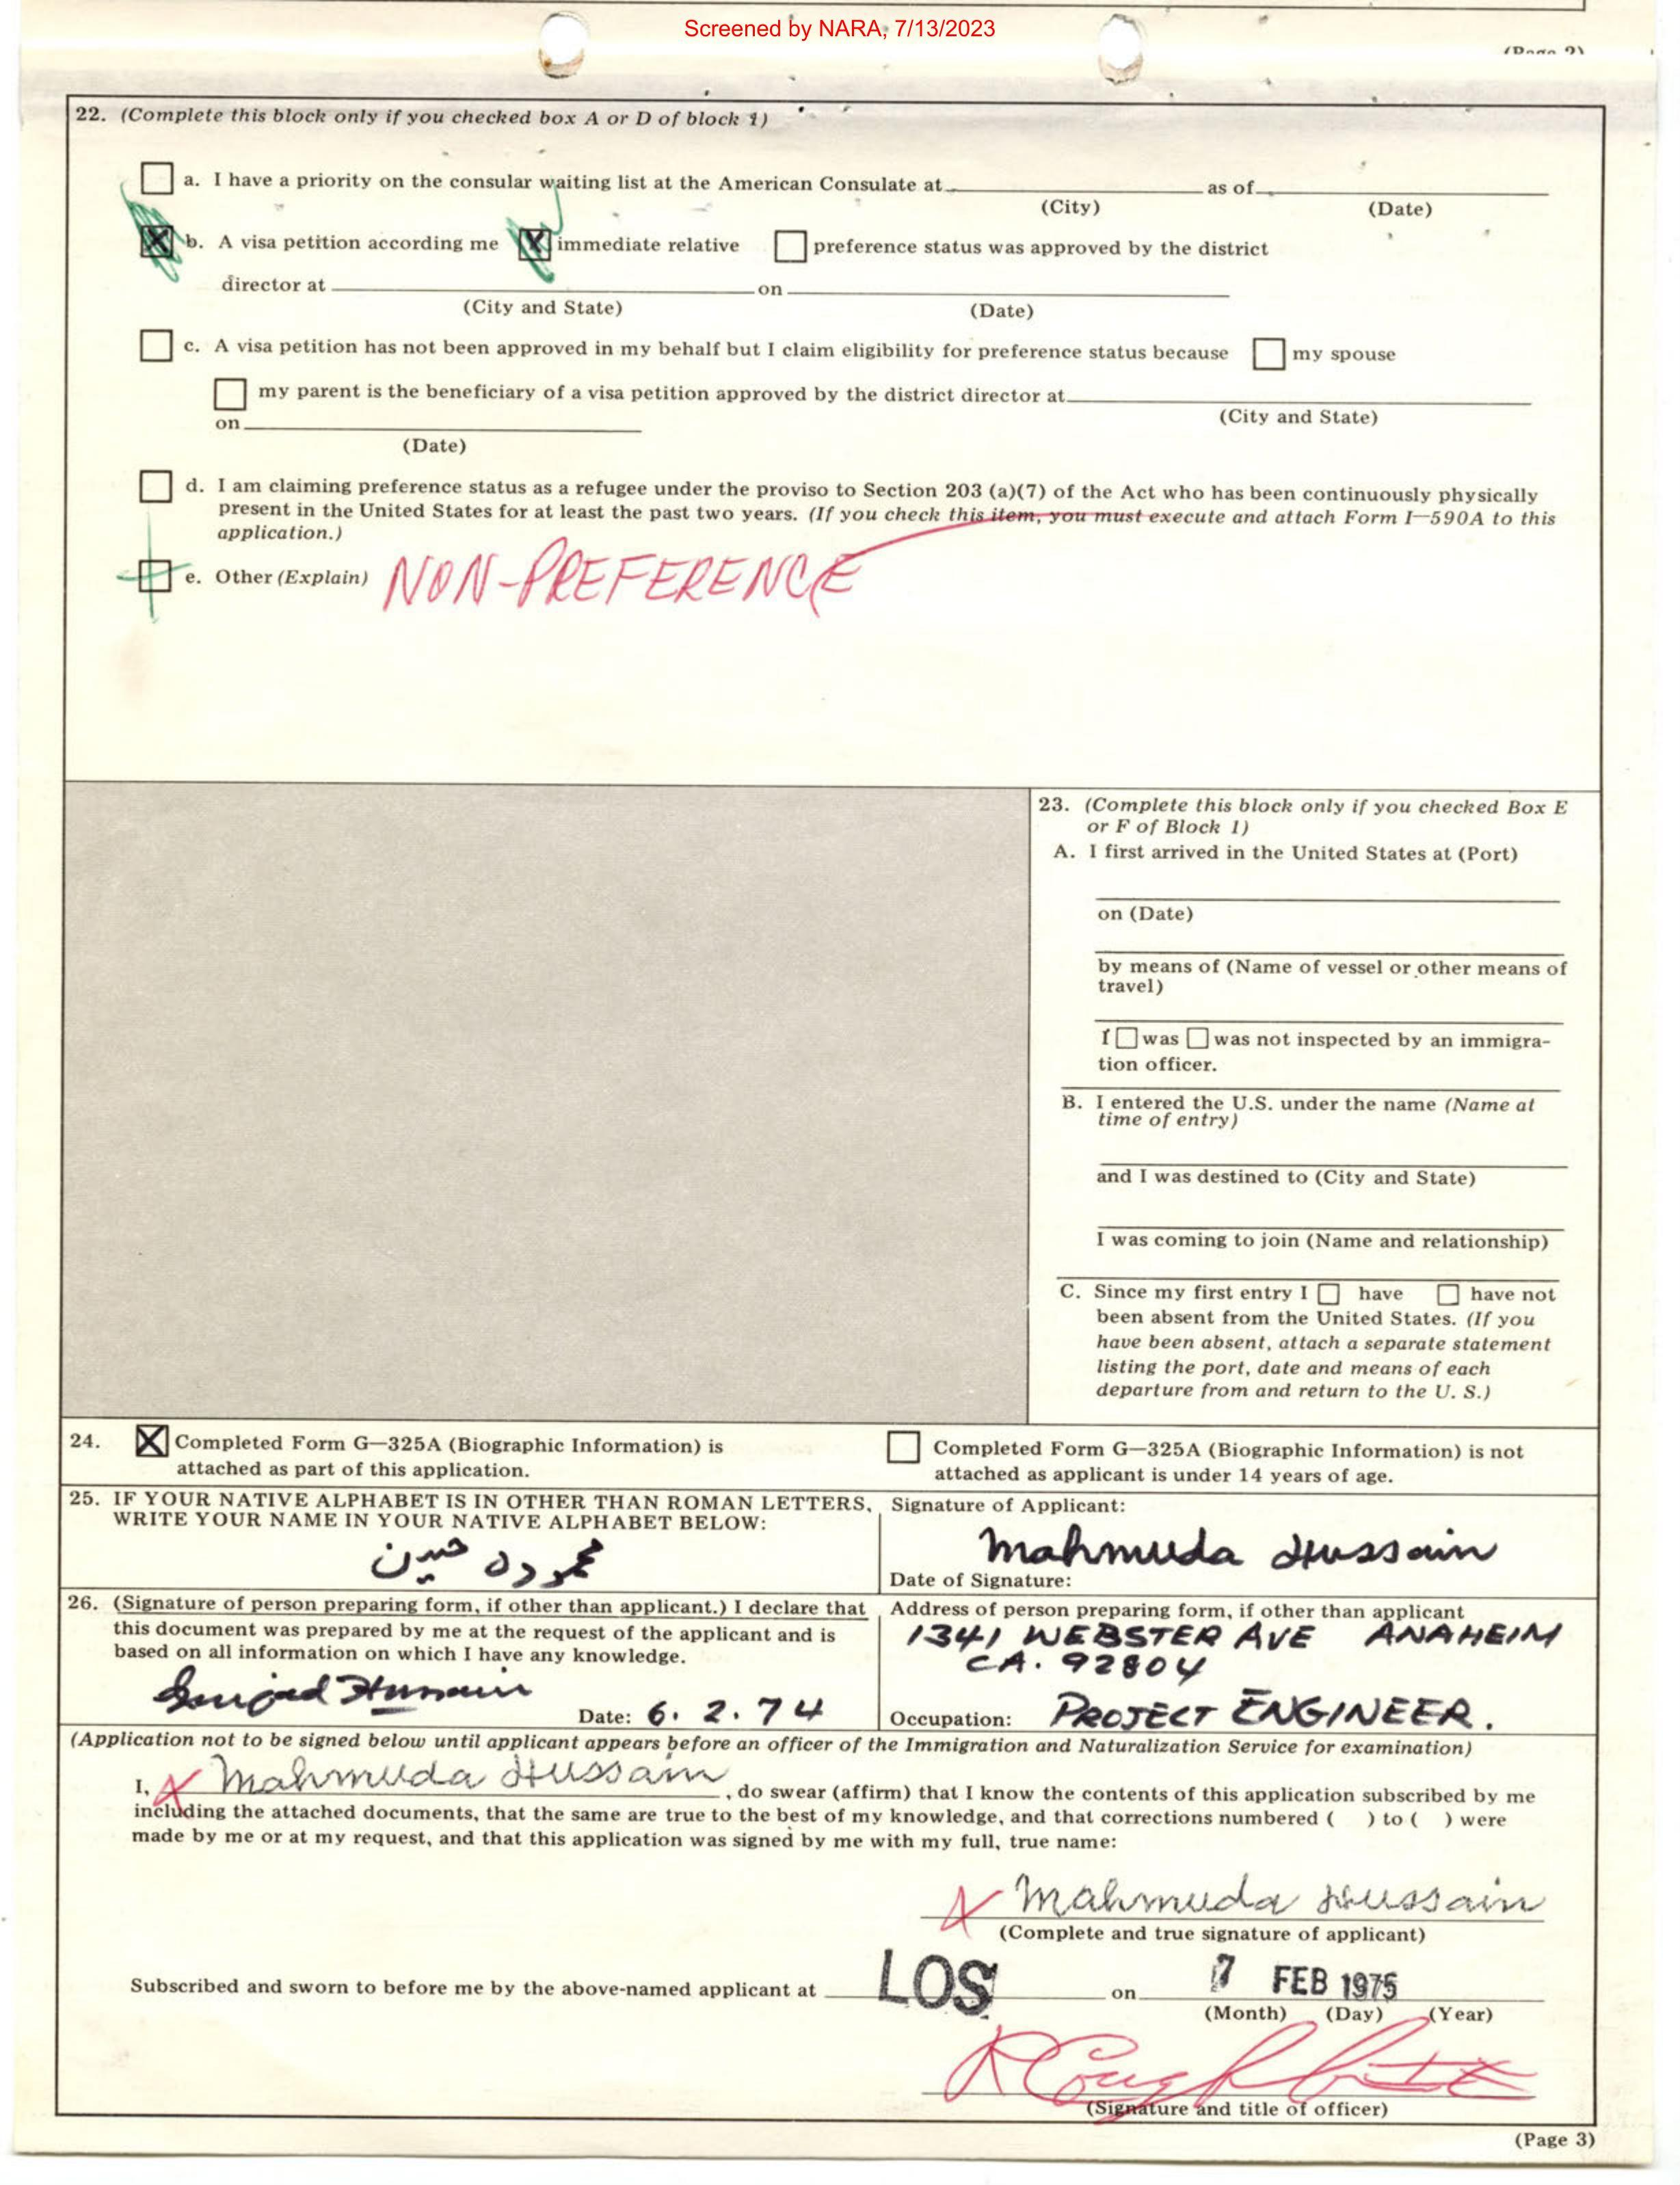 Screened by NARA, 7/13/2023
22. (Complete this block only if you checked box A or D of block 1)
a. I have a priority on the consular waiting list at the American Consulate at as of
(City) (Date)
b. A visa petition according me X immediate relative preference status was approved by the district
director at on
(City and State) (Date)
c. A visa petition has not been approved in my behalf but I claim eligibility for preference status because my spouse
my parent is the beneficiary of a visa petition approved by the district director at
(City and State)
on
(Date)
d. I am claiming preference status as a refugee under the proviso to Section 203 (a)(7) of the Act who has been continuously physically
present in the United States for at least the past two years. (If you check this item, you must execute and attach Form I—590A to this
application.)
e. Other (Explain) NON-PREFERENCE
23. (Complete this block only if you checked Box E
or F of Block 1)
A. I first arrived in the United States at (Port)
on (Date)
by means of (Name of vessel or other means of
travel)
I was was not inspected by an immigra-
tion officer.
B. I entered the U.S. under the name (Name at
time of entry)
and I was destined to (City and State)
I was coming to join (Name and relationship)
C. Since my first entry I have have not
been absent from the United States. (If you
have been absent, attach a separate statement
listing the port, date and means of each
departure from and return to the U. S.)
24. X Completed Form G—325A (Biographic Information) is
attached as part of this application.
Completed Form G—325A (Biographic Information) is not
attached as applicant is under 14 years of age.
25. IF YOUR NATIVE ALPHABET IS IN OTHER THAN ROMAN LETTERS,
WRITE YOUR NAME IN YOUR NATIVE ALPHABET BELOW:
محمودہ حسین
Signature of Applicant:
Mahmuda Hussain
Date of Signature:
26. (Signature of person preparing form, if other than applicant.) I declare that
this document was prepared by me at the request of the applicant and is
based on all information on which I have any knowledge.
Date: 6. 2. 74
Address of person preparing form, if other than applicant
1341 WEBSTER AVE ANAHEIM
CA. 92804
Occupation: PROJECT ENGINEER.
(Application not to be signed below until applicant appears before an officer of the Immigration and Naturalization Service for examination)
I, X Mahmuda Hussain , do swear (affirm) that I know the contents of this application subscribed by me
including the attached documents, that the same are true to the best of my knowledge, and that corrections numbered ( ) to ( ) were
made by me or at my request, and that this application was signed by me with my full, true name:
X Mahmuda Hussain
(Complete and true signature of applicant)
Subscribed and sworn to before me by the above-named applicant at LOS on 7 FEB 1975
(Month) (Day) (Year)
(Signature and title of officer)
(Page 3)